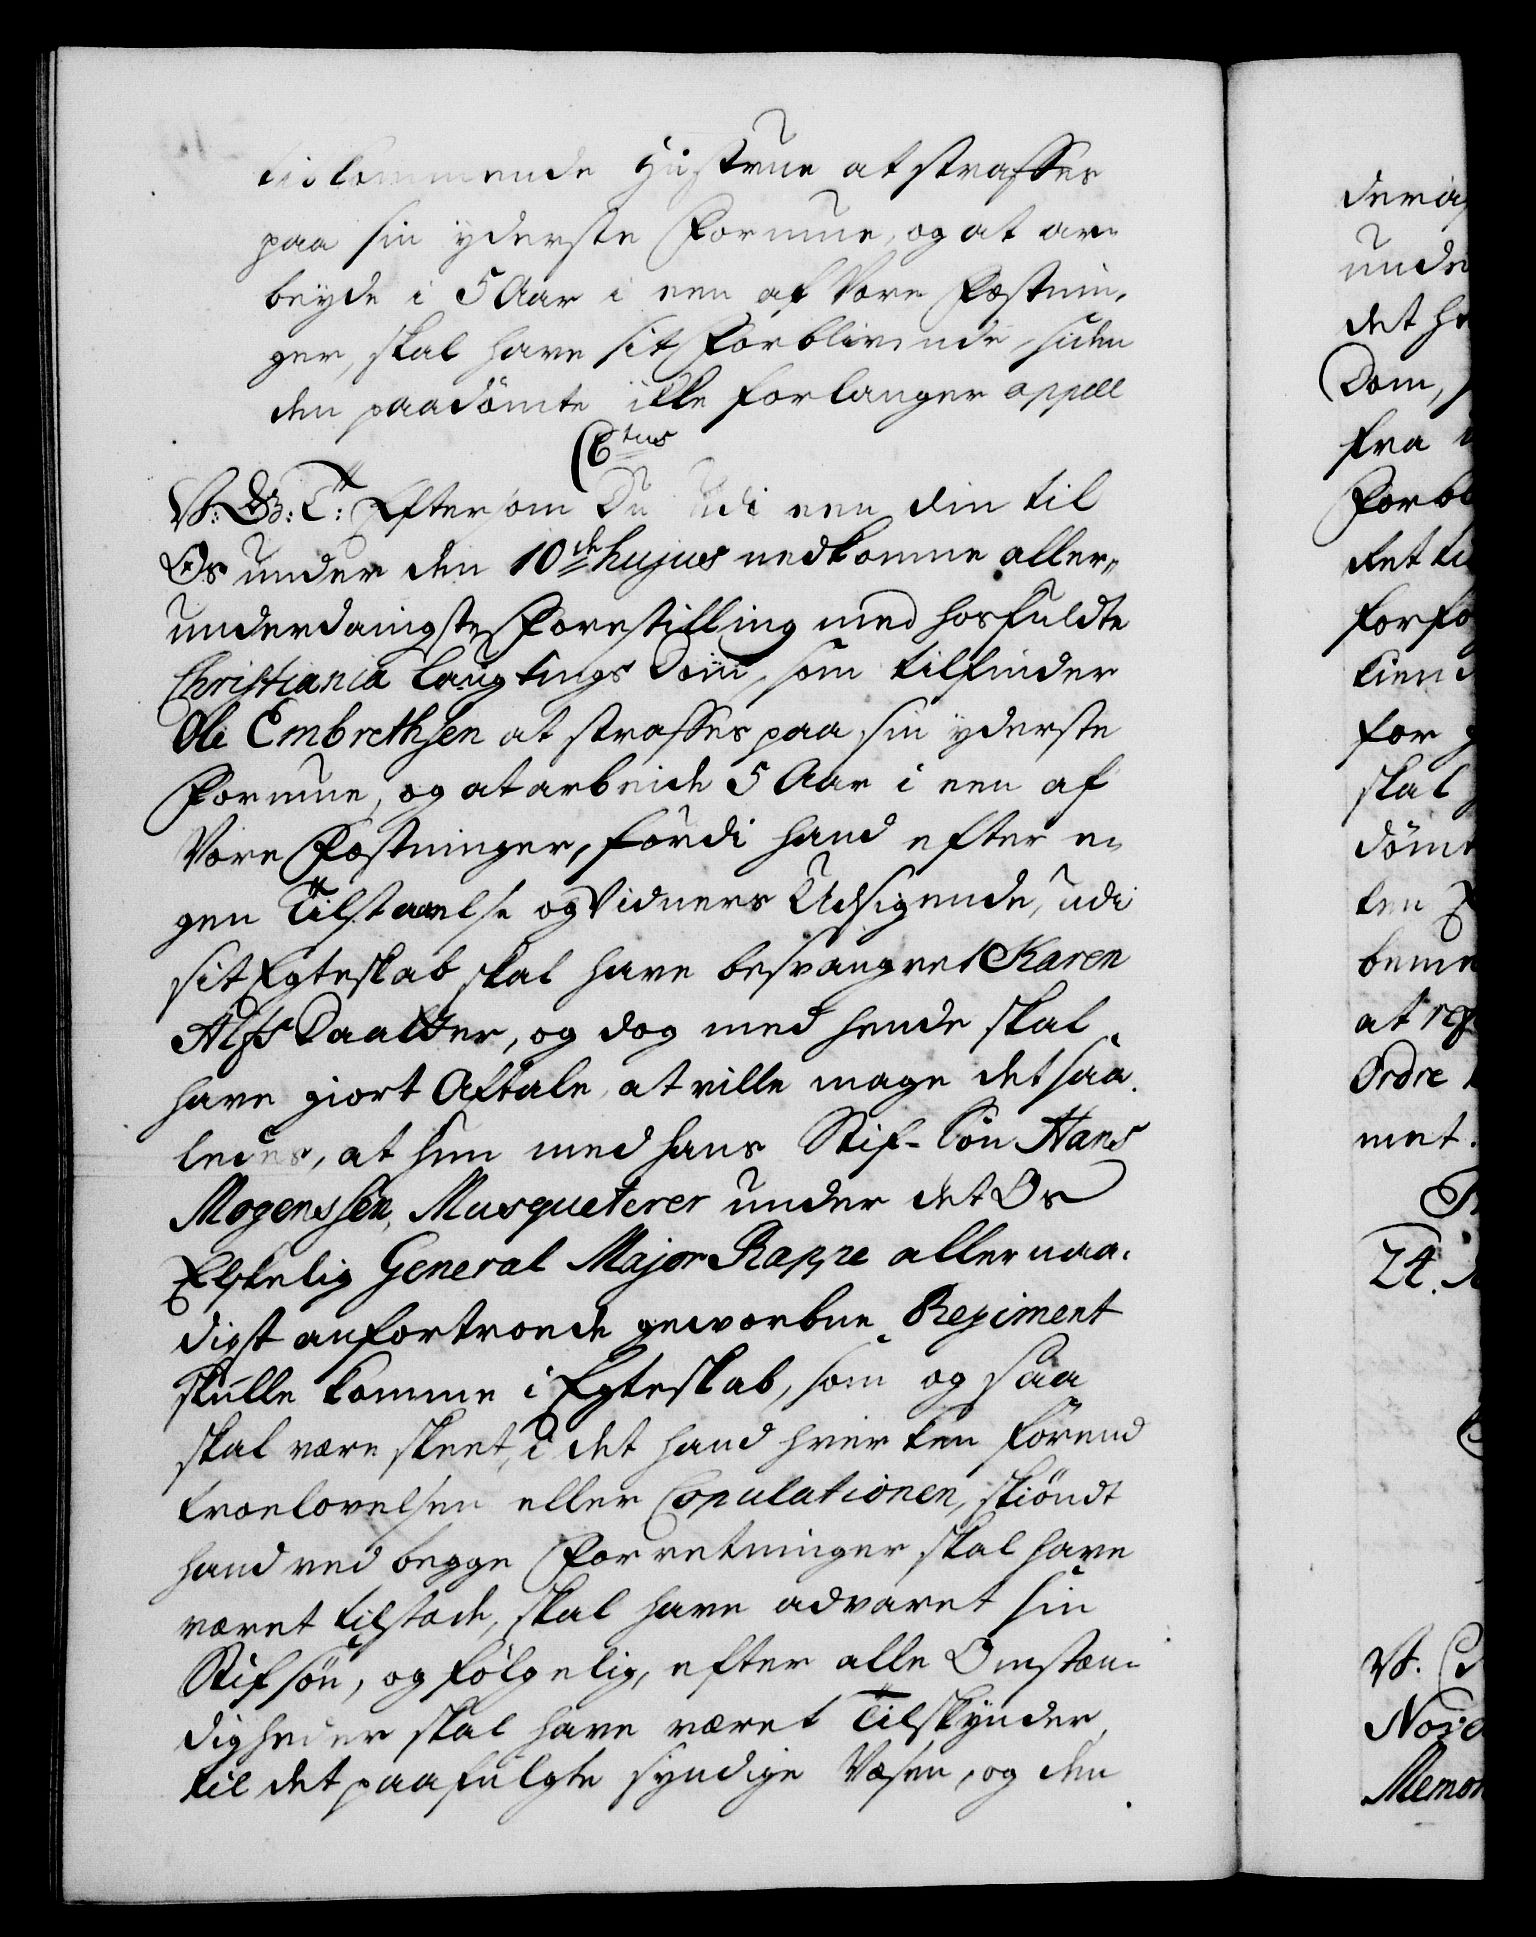 tilkommende Hustrue at straffes
paa sin yderste Formue, og at ar-
beyde i 5 Aar i een af Vore Fæstnin-
ger, skal have sit Forblivende, siden
den paadömte ikke forlanger appell
C6tus
V: G: T: Eftersom Du udi een din til
Os under den 10de hujus nedkomne aller-
underdanigste Forestilling med hosfuldte
Christiania Laugtings Dom, som tilfinder
Ole Embrethsen at straffes paa sin yderste
Formue, og at arbeide 5 Aar i een af
Vore Fæstninger, fordi hand efter e-
gen Tilstaaelse og Vidners Udsigende, udi
sit Egteskab skal have besvangret Karen
Alfs Daatter, og dog med hende skal
have giort Aftale, at ville mage det saa-
ledes, at hun med hans Stif-Sön Hans
Mogenssen, Musqueterer under det Os
Elskelig General Major Rappe allernaa-
digst anfortroede geworbne Regiment
skulle komme i Egteskab, som og saa
skal være skeet, i det hand hverken förend
Troelovelsen eller Copulationen, skiöndt
hand ved begge Forretninger skal have
været tilstæde, skal have advaret sin
Stifsön, og fölgelig, efter alle Omstæn-
digheder skal have været Tilskynder
til det paafulgte syndige Væsen, og den
under
det
Dom,
fra
for
skal
at
Ordre
met.
24.